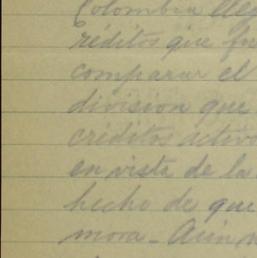 Colombia lleg
réditos que fu
comparar el
division que
créditos activo
en vista de la
hecho de que
mora - Aún n